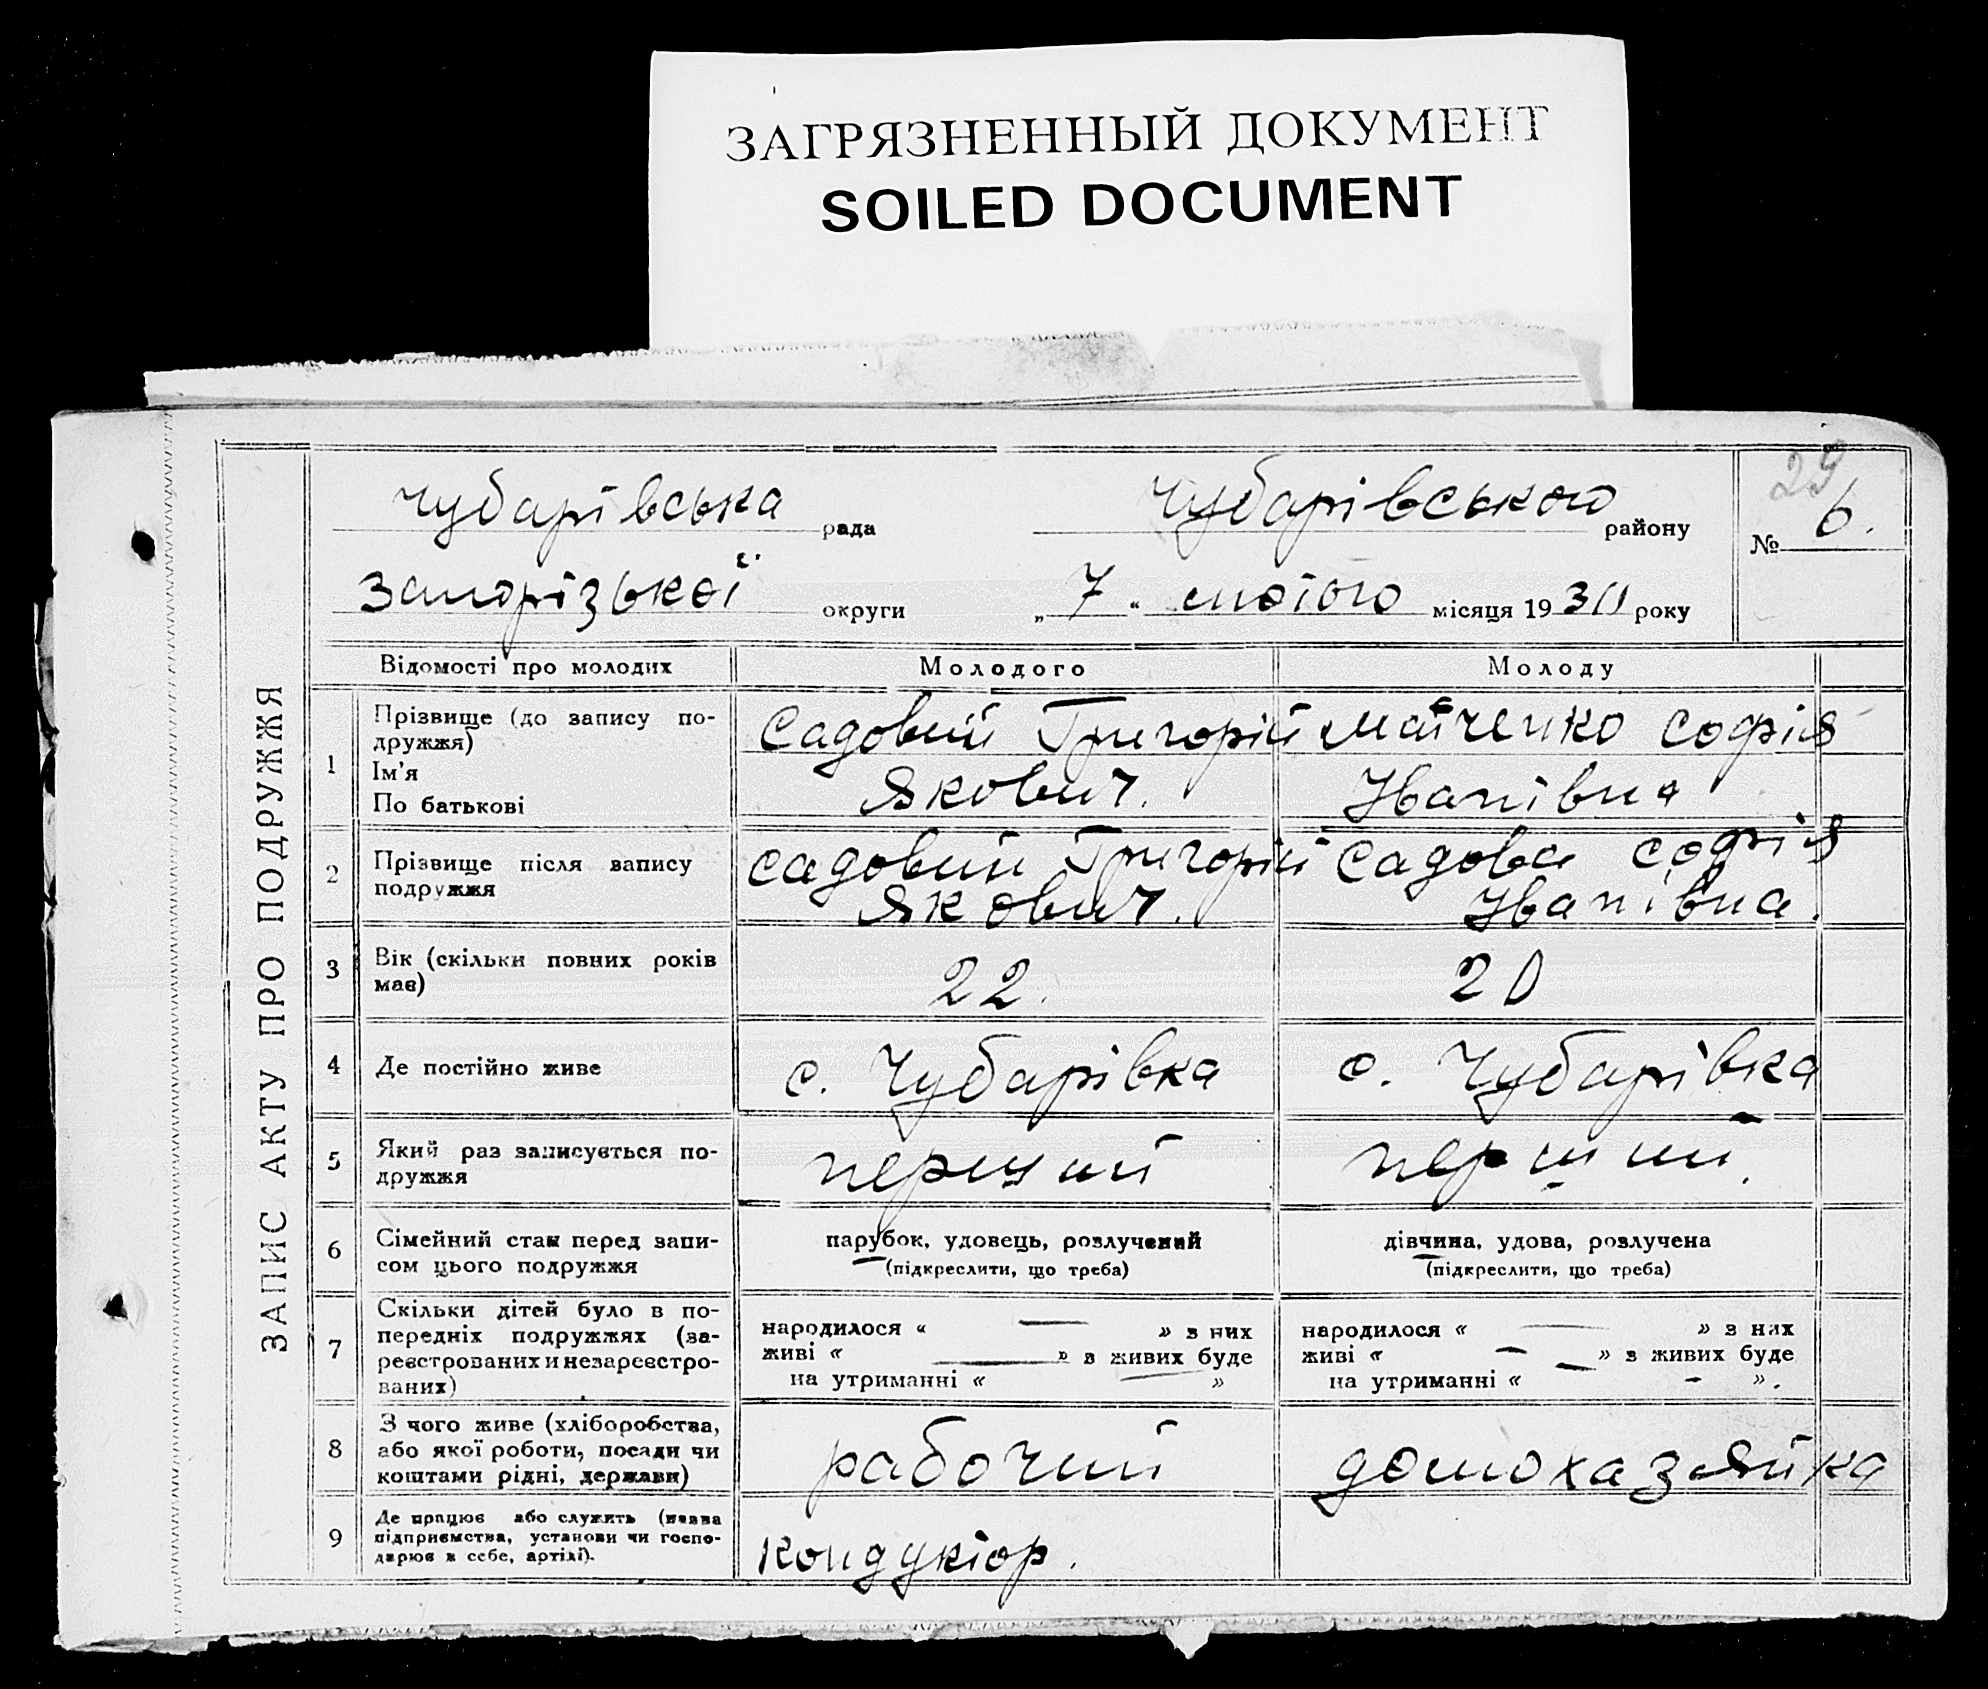 ЗАГРЯЗНЕННЫЙ ДОКУМЕНТ
SOILED DOCUMENT
29
Чубарівська рада Чубарівського району № 6.
Запорізької округи „7“ лютого місяця 1930 року
ЗАПИС АКТУ ПРО ПОДРУЖЖЯ
Відомості про молодих
Молодого
Молоду
1
Прізвище (до запису по-
дружжя)
Ім'я
По батькові
Садовий Григорій
Якович.
Матченко Софія
Іванівна
2
Прізвище після запису
подружжя
Садовий Григорій
Якович.
Садова Софія
Іванівна.
3
Вік (скільки повних років
має)
22.
20
4
Де постійно живе
с. Чубарівка
с. Чубарівка
5
Який раз записується по-
дружжя
перший
перший.
6
Сімейний стан перед запи-
сом цього подружжя
парубок, удовець, розлучений
(підкреслити, що треба)
дівчина, удова, розлучена
(підкреслити, що треба)
7
Скільки дітей було в по-
передніх подружжях (за-
реєстрованих и незареєстро-
ваних)
народилося « — » з них
живі « — » в живих буде
на утриманні « — »
народилося « — » з них
живі « — » з живих буде
на утриманні « - ».
8
З чого живе (хліборобства,
або якої роботи, посади чи
коштами рідні, держави)
рабочий
домохазяйка
9
Де працює або служить (назва
підприємства, установи чи госпо-
дарює в себе, артілі).
кондуктор.